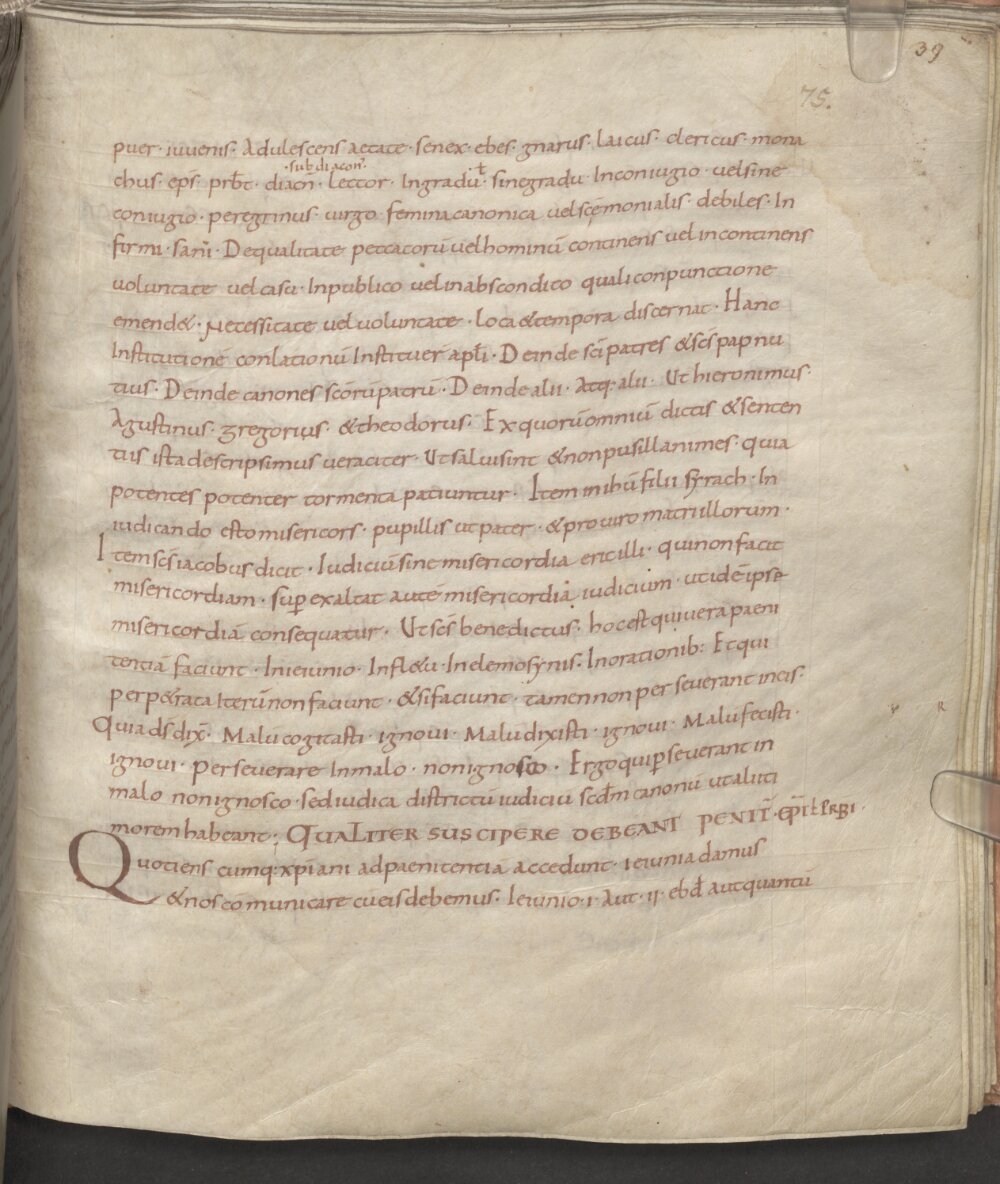 39
75.
puer · iuuenis · Adulescens aetate · senex · ebes · gnarus · laicus · clericus · mona
·subdiacoñ·
chus · eps̄ · prb̄t · diacñ · Lector · Ingradū ł sinegradu · Inconiugio · uelsine
coniugio · peregrinus · uirgo femina canonica uel scēmonialis · debiles · In
firmi · sani · Dequalitate peccatorū uelhominū continens uel incontinens
uoluntate uel casu · Inpublico uelinabscondito qualiconpunctione
emend& · Necessitate uel uoluntate · Loca &tempora discernat · Hanc
Institutionē conlationū Instituer̄ apłi · Deinde sc̄i patres &sc̄s papnu
tius · Deinde canones sc̄orū patrū · Deinde alii · Atq: alii · Ut hieronimus ·
Agustinus · gregorius · &theodorus · Exquorū omniū dictis &senten
tiis ista descripsimus ueraciter · Ut saluisint &nonpusillanimes · quia
potentes potenter tormenta patiuntur · Item in ihū filii syrach · In
iudicando esto misericors · pupillis ut pater · &pro uiro matri illorum ·
Item sc̄s iacobus dicit · Iudiciū sine misericordia erit illi · quinon facit
misericordiam · sup̄ exaltat autē misericordiā iudicium · ut idē ipse
misericordiā consequatur · Ut sc̄s benedictus · hoc est qui uera paeni
tentiā faciunt · Inieiunio · Infl&u · Inelemosynis · Inorationib: Et qui
perp&rata Iterū non faciunt · &si faciunt · tamen non perseuerant in eis ·
Quia ds̄ dix̄ · Malū cogitasti · ignoui · Malū dixisti · ignoui · Malū fecisti ·
ignoui · perseuerare Inmalo · non ignosco · Ergo qui p̄seuerant in
malo non ignosco · sed iudica districtū iudiciū scdm̄ canonū utaliiti
morem habeant; QUALITER SUSCIPERE DEBEANT PENIT̄ · EP̄I ł PRBI ·
Quotiens cumq: xp̄iani adpaenitentiā accedunt · ieiunia damus
&nos cōmunicare cū eis debemus · Ieiunio · i · Aut · ii · ebd̄ aut quantū